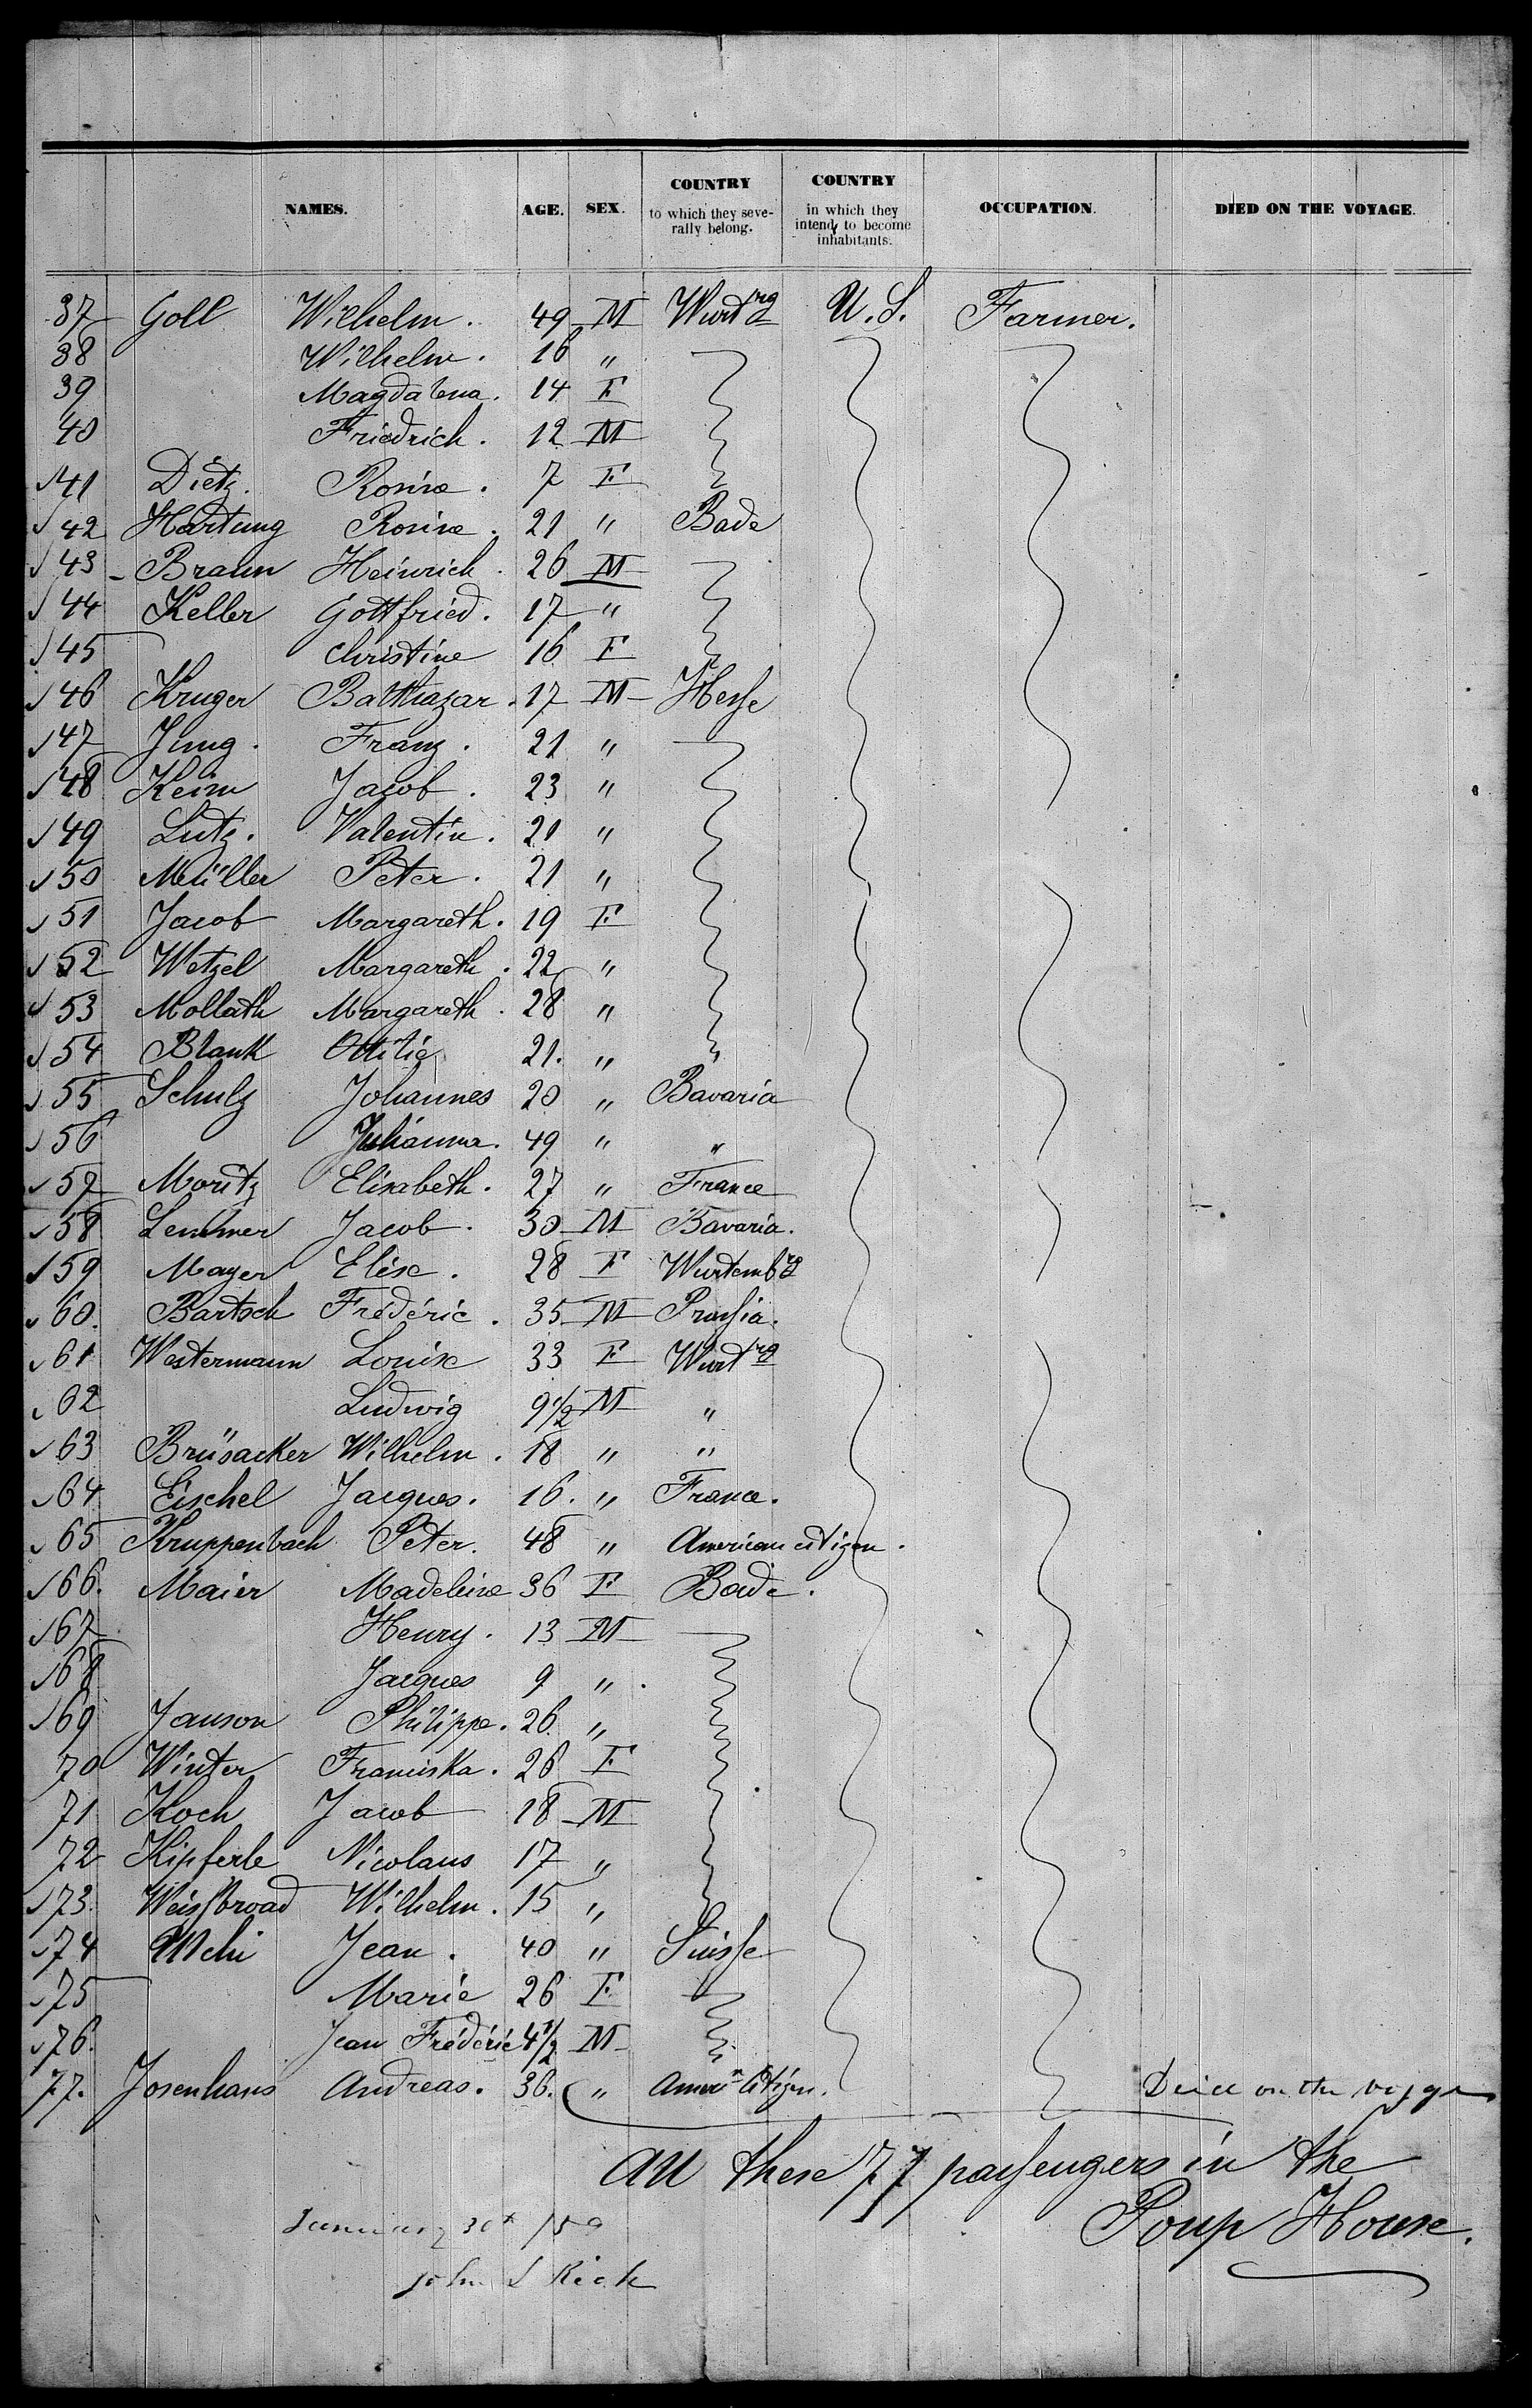 NAMES. AGE. SEX. COUNTRY to which they seve-rally belong. COUNTRY in which they intend to become inhabitants. OCCUPATION. DIED ON THE VOYAGE.
37 Goll Wilhelm. 49 M Wurtrg U.S. Farmer.
38 Wilhelm. 16 "
39 Magdalena. 14 F
40 Friedrich. 12 M
41 Dietz. Rosine. 7 F
42 Hartung Rosine. 21 " Bade
43 Braun Heinrich. 26 M
44 Keller Gottfried. 17 "
45 Christine 16 F
46 Kruger Balthazar. 17 M Hesse
47 Jung. Franz. 21 "
48 Keim Jacob. 23 "
49 Lutz. Valentin. 21 "
50 Müller Peter. 21 "
51 Jacob Margareth. 19 F
52 Wetzel Margareth. 22 "
53 Mollath Margareth. 28 "
54 Blank Ottilie 21. "
55 Schulz Johannes 20 " Bavaria
56 Julianna. 49 " "
57 Moritz Elisabeth. 27 " France
58 Jacob. 30 M Bavaria.
59 Mayer Elise. 28 F Wurtembrg
60. Bartsch Frédéric. 35 M Prussia.
61 Westermann Louise 33 F Wurtrg
62 Ludwig 9 1/2 M "
63 Brüsacker Wilhelm. 18 " "
64 Eischel Jacques. 16. " France.
65 Kruppenbach Peter. 48 " American citizen.
66. Maier Madeleine 36 F Bade.
67 Henry. 13 M
68 Jacques 9 ".
69 Janson Philippe. 26. "
70 Winter Franciska. 26 F
71 Koch Jacob 18 M
72 Kipferle Nicolaus 17 "
73. Weissbroad Wilhelm. 15 "
74 Wehi Jean. 40 " Suisse
75 Marie 26 F
76. Jean Frédéric 4 1/2 M
77. Josenhans Andreas. 36. " Amern Citizen. Died on the voyage
All these 77 passengers in the
Poup House.
January 30th /59
John S Rich